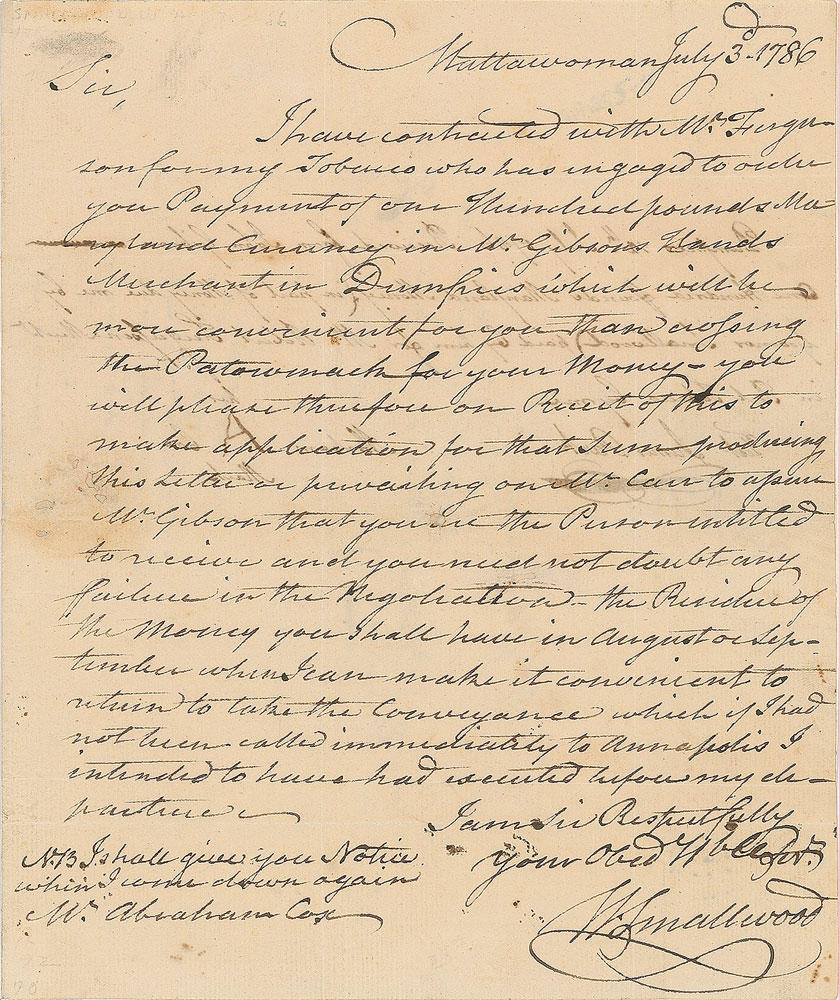 Mattawoman July 3d. 1786
Sir,
I have contracted with Mr. Fergu-
son for my Tobacco who has engaged to order
you Payment of one Hundred pounds Ma-
ryland Currency in Mr. Gibsons Hands
Merchant in Dumfries which will be
more convenient for you than crossing
the Patowmack for your Money - you
will please therefore on Receit of this to
make application for that Sum producing
this Letter or prevailing on Mr. Carr to assure
Mr. Gibson that you are the Person intitled
to receive and you need not doubt any
failure in the Negotiation - the Residue of
the Money you shall have in August or Sep-
tember when I can make it convenient to
return to take the Conveyance which if I had
not been called immediately to Annapolis I
intended to have had executed before my de-
parture
I am Sir Respectfully
Your Obed Hble Servt.
W. Smallwood
N:B I shall give you Notice
when I come down again
Mr. Abraham Cox